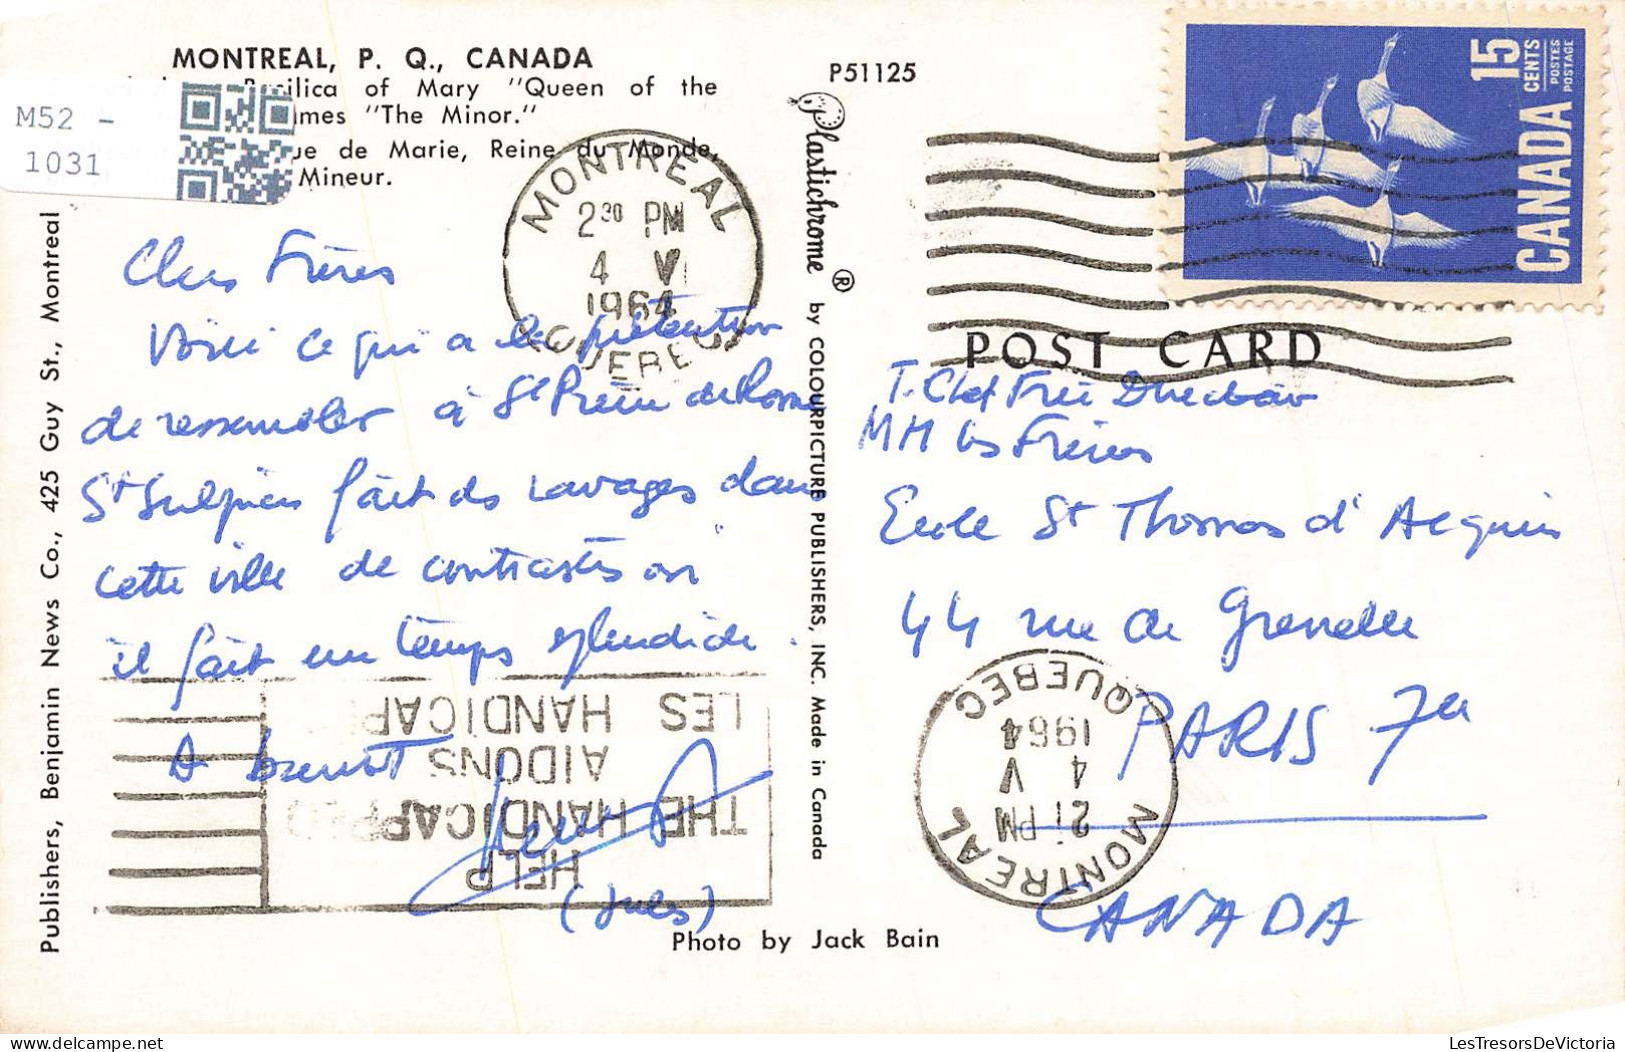 MONTREAL, P. Q., CANADA
Basilica of Mary "Queen of the
"The Minor."
ue de Marie, Reine du Monde,
Mineur.
M52 -
1031
P51125
Publishers, Benjamin News Co., 425 Guy St., Montreal
Plastichrome ® by COLOURPICTURE PUBLISHERS, INC. Made in Canada
15
CENTS
POSTES
POSTAGE
CANADA
POST CARD
MONTREAL
2 30 PM
4 V
1964
QUEBEC
Chers Frères
Voici ce qui a la prétention
de ressembler à St Pierre de Rome
St Sulpicien fait des ravages dans
cette ville de contrastes où
il fait un temps splendide.
A bientôt
(Jules)
T. Cher Frère Directeur
MM les Frères
Ecole St Thomas d'Aequin
44 rue de Grenelle
PARIS 7e
CANADA
MONTREAL
21 PM
4 V
1964
QUEBEC
HELP
THE HANDICAPPED
AIDONS
LES HANDICAP
Photo by Jack Bain
LesTresorsDeVictoria
delcampe.net